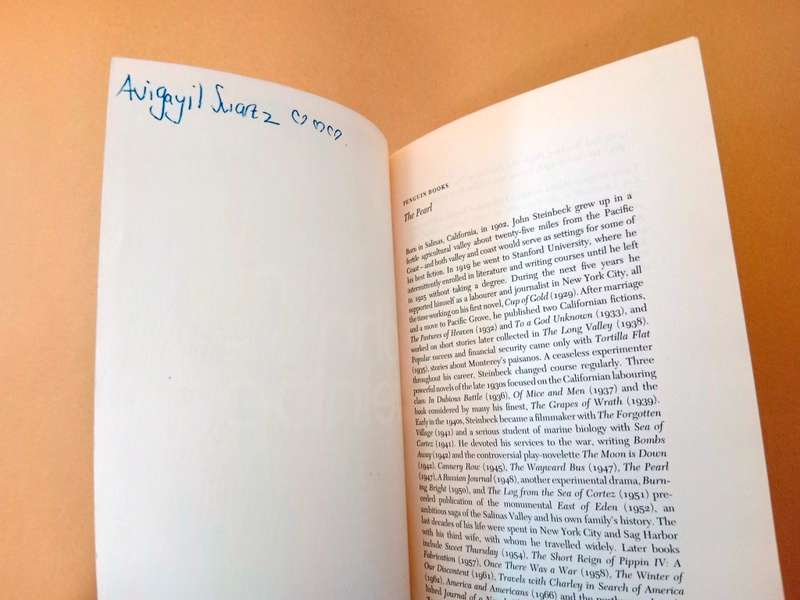 Avigayil Swartz
PENGUIN BOOKS
The Pearl
Born in Salinas, California, in 1902, John Steinbeck grew up in a
fertile agricultural valley about twenty-five miles from the Pacific
Coast – and both valley and coast would serve as settings for some of
his best fiction. In 1919 he went to Stanford University, where he
intermittently enrolled in literature and writing courses until he left
in 1925 without taking a degree. During the next five years he
supported himself as a labourer and journalist in New York City, all
the time working on his first novel, Cup of Gold (1929). After marriage
and a move to Pacific Grove, he published two Californian fictions,
The Pastures of Heaven (1932) and To a God Unknown (1933), and
worked on short stories later collected in The Long Valley (1938).
Popular success and financial security came only with Tortilla Flat
(1935), stories about Monterey's paisanos. A ceaseless experimenter
throughout his career, Steinbeck changed course regularly. Three
powerful novels of the late 1930s focused on the Californian labouring
class: In Dubious Battle (1936), Of Mice and Men (1937) and the
book considered by many his finest, The Grapes of Wrath (1939).
Early in the 1940s, Steinbeck became a filmmaker with The Forgotten
Village (1941) and a serious student of marine biology with Sea of
Cortez (1941). He devoted his services to the war, writing Bombs
Away (1942) and the controversial play-novelette The Moon is Down
(1942). Cannery Row (1945), The Wayward Bus (1947), The Pearl
(1947), A Russian Journal (1948), another experimental drama, Burn-
ing Bright (1950), and The Log from the Sea of Cortez (1951) pre-
ceded publication of the monumental East of Eden (1952), an
ambitious saga of the Salinas Valley and his own family's history. The
last decades of his life were spent in New York City and Sag Harbor
with his third wife, with whom he travelled widely. Later books
include Sweet Thursday (1954), The Short Reign of Pippin IV: A
Fabrication (1957), Once There Was a War (1958), The Winter of
Our Discontent (1961), Travels with Charley in Search of America
(1962), America and Americans (1966) and the